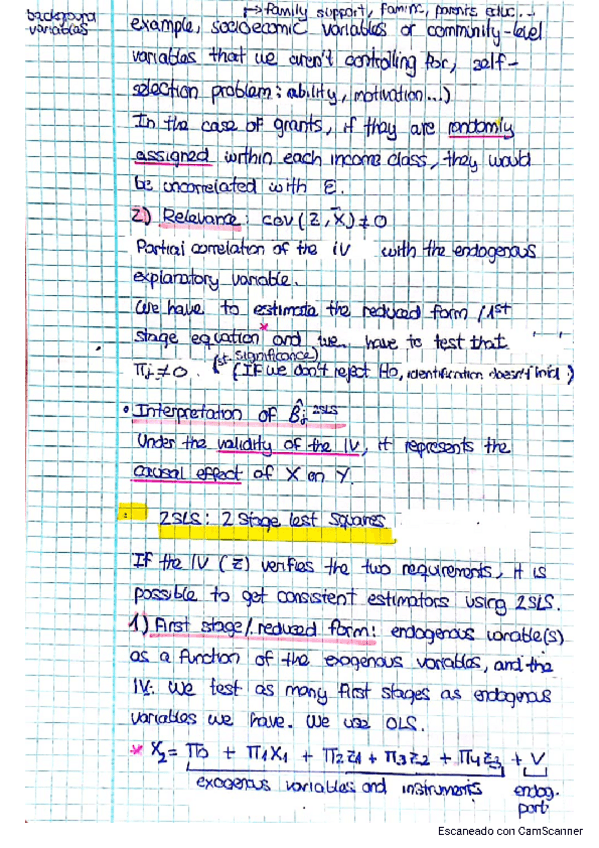 background
variables
→ Family support, famInc, parents educ...
example, socioeconomic variables or community-level
variables that we aren't controlling for, self-
selection problem: ability, motivation...)
In the case of grants, if they are randomly
assigned within each income class, they would
be uncorrelated with ε.
2) Relevance: cov(z, x) ≠ 0
Partial correlation of the iV with the endogenous
explanatory variable.
We have to estimate the reduced form / 1st
stage equation* and we have to test that
πj ≠ 0. (st. significance) (IF we don't reject Ho, identification doesn't
• Interpretation of β̂j 2SLS
Under the validity of the IV, it represents the
causal effect of X on Y.
2SLS: 2 stage lest squares
If the IV (z) verifies the two requirements, it is
possible to get consistent estimators using 2SLS.
1) First stage/reduced form: endogenous variable(s)
as a function of the exogenous variables, and the
IV. We test as many first stages as endogenous
variables we have. We use OLS.
* X2 = π0 + π1X1 + π2z1 + π3z2 + π4z3 + V
exogenous variables and instruments endog.
part.
Escaneado con CamScanner